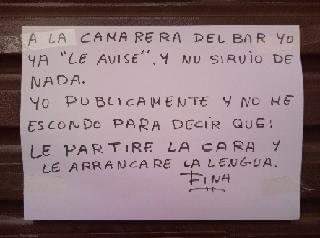 A LA CAMARERA DEL BAR YO
YA "LE AVISE", Y NO SIRVIO DE
NADA.
YO PUBLICAMENTE Y NO ME
ESCONDO PARA DECIR QUE:
LE PARTIRE LA CARA Y
LE ARRANCARE LA LENGUA.
FINA